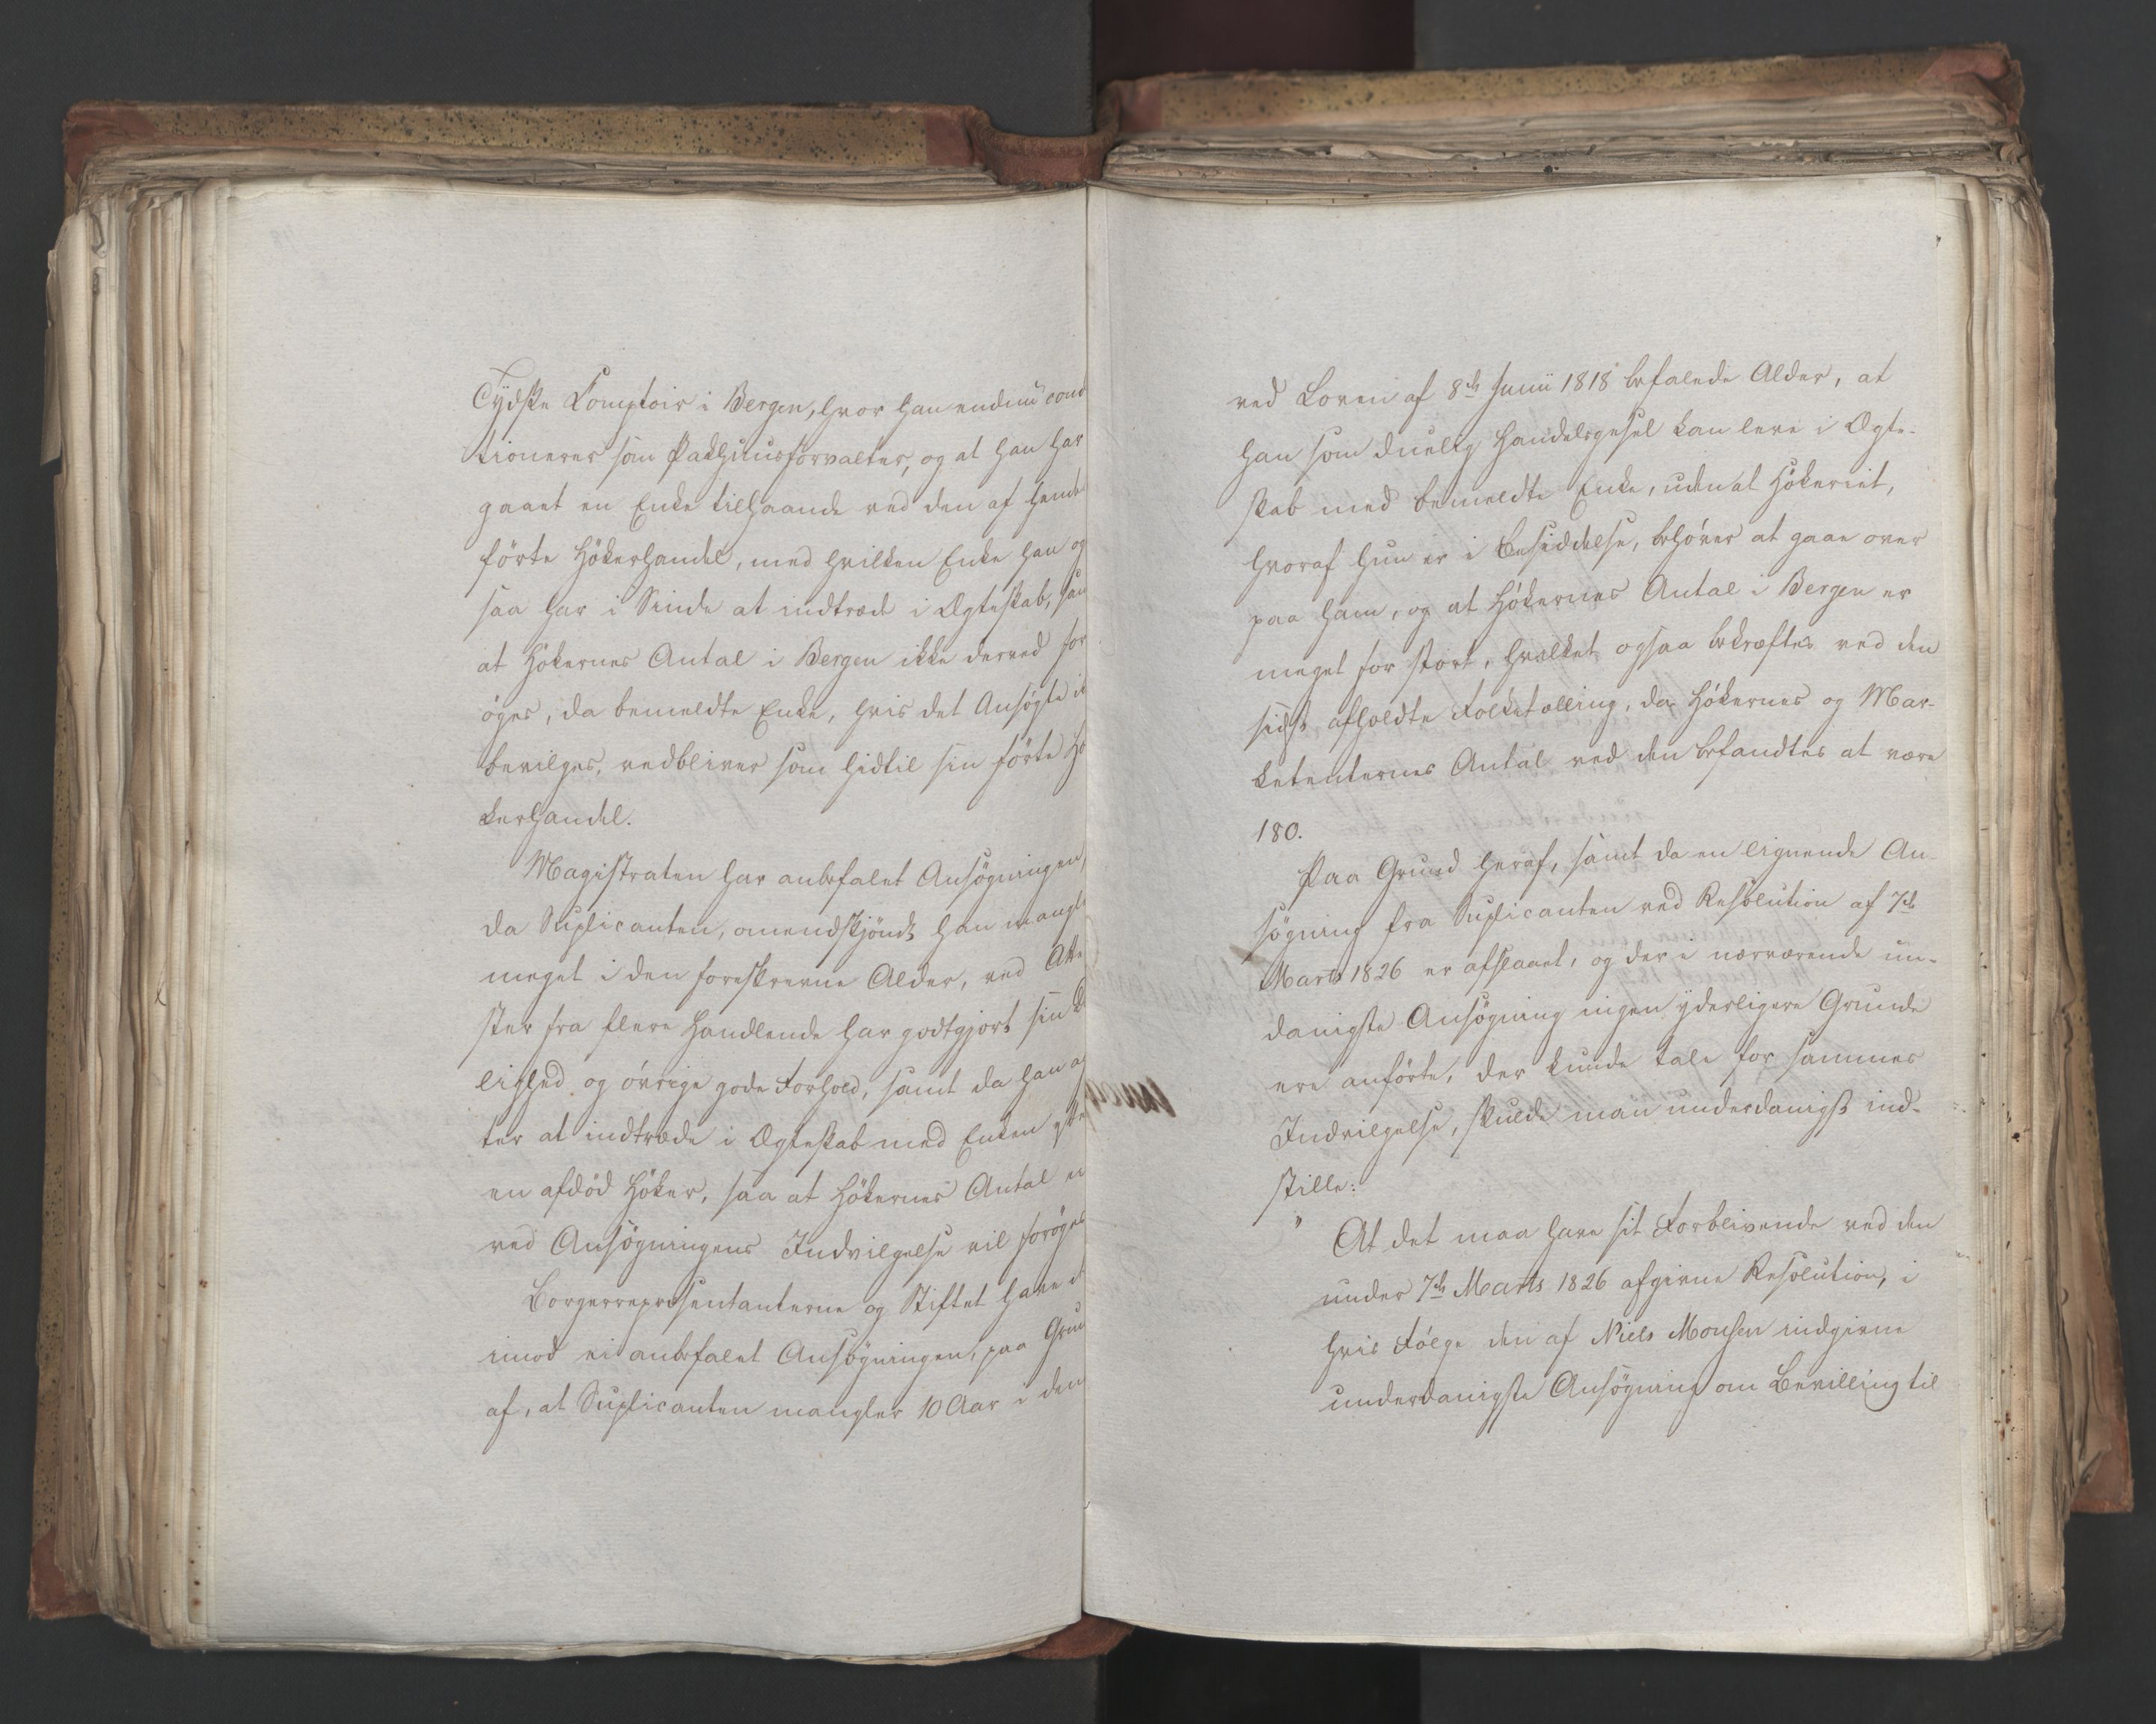 Tydske Comptoir i Bergen, hvor han endnu cond
tionerer som Pakhuusforvalter, og at han har
gaaet en Enke tilhaande ved den af hende
förte Hökerhandel, med hvilken Enke han og
saa har i Sinde at indtræde i Ægteskab, saa
at Hökernes Antal i Bergen ikke derved for
öges, da bemeldte Enke, hvis det Ansögte i
bevilges, vedbliver som hidtil sin förte Hö
kerhandel.
Magistraten har anbefalet Ansögningen,
da Suplicanten, omendskjöndt han mangle
meget i den foreskrevne Alder, ved Atte
ster fra flere Handlende har godtgjort sin D
lighed og övrige gode Forhold, samt da han a
ter at indtræde i Ægteskab med Enken efte
en afdöd Höker, saa at Hökernes Antal ei
ved Ansögningens Indvilgelse vil foröges
Borgerrepræsentanterne og Stiftet have d
imod ei anbefalet Ansögningen, paa Grun
af, at Suplicanten mangler 10 Aar i den
ved Loven af 8de Junii 1818 befalede Alder, at
han som duelig Handelsgesel kan leve i Ægte-
skab med bemeldte Enke, uden at Hökeriet,
hvoraf hun er i Besiddelse, behöver at gaae over
paa ham, og at Hökernes Antal i Bergen er
meget for stort, hvilket ogsaa bekræftes ved den
sidst afholdte Folketælling, da Hökernes og Mar-
ketenternes Antal ved den befandtes at være
180.
Paa Grund heraf, samt da en lignende An-
sögning fra Suplicanten ved Resolution af 7de
Marts 1826 er afslaaet, og der i nærværende un-
danigste Ansögning ingen yderligere Grunde
ere anförte, der kunde tale for sammes
Indvilgelse, skulde man underdanigst ind-
stille:
" At det maa have sit Forblivende ved den
under 7de Marts 1826 afgivne Resolution, i
hvis Fölge den af Niels Monsen indgivne
underdanigste Ansögning om Bevilling til